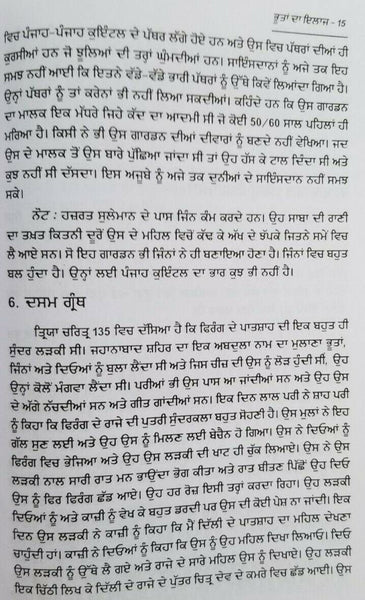 ਭੂਤਾਂ ਦਾ ਇਲਾਜ - 15
ਵਿਚ ਪੰਜਾਹ-ਪੰਜਾਹ ਕੁਇੰਟਲ ਦੇ ਪੱਥਰ ਲੱਗੇ ਹੋਏ ਹਨ ਅਤੇ ਉਸ ਵਿਚ ਪੱਥਰਾਂ ਦੀਆਂ ਹੀ
ਕੁਰਸੀਆਂ ਹਨ ਜੋ ਝੂਲਿਆਂ ਦੀ ਤਰ੍ਹਾਂ ਘੁੰਮਦੀਆਂ ਹਨ। ਸਾਇੰਸਦਾਨਾਂ ਨੂੰ ਅਜੇ ਤਕ ਇਹ
ਸਮਝ ਨਹੀਂ ਆਈ ਕਿ ਇਤਨੇ ਵੱਡੇ-ਵੱਡੇ ਭਾਰੀ ਪੱਥਰਾਂ ਨੂੰ ਉੱਥੇ ਕਿਵੇਂ ਲਿਆਂਦਾ ਗਿਆ ਹੈ।
ਉਨ੍ਹਾਂ ਪੱਥਰਾਂ ਨੂੰ ਤਾਂ ਕਰੇਨਾਂ ਭੀ ਨਹੀਂ ਲਿਆ ਸਕਦੀਆਂ। ਕਹਿੰਦੇ ਹਨ ਕਿ ਉਸ ਗਾਰਡਨ
ਦਾ ਮਾਲਕ ਇਕ ਮੱਧਰੇ ਜਿਹੇ ਕੱਦ ਦਾ ਆਦਮੀ ਸੀ ਜੋ ਕੋਈ 50/60 ਸਾਲ ਪਹਿਲਾਂ ਹੀ
ਮਰਿਆ ਹੈ। ਕਿਸੀ ਨੇ ਭੀ ਉਸ ਗਾਰਡਨ ਦੀਆਂ ਦੀਵਾਰਾਂ ਨੂੰ ਬਣਦੇ ਨਹੀਂ ਵੇਖਿਆ। ਜਦ
ਉਸ ਦੇ ਮਾਲਕ ਤੋਂ ਉਸ ਬਾਰੇ ਪੁੱਛਿਆ ਜਾਂਦਾ ਸੀ ਤਾਂ ਉਹ ਹੱਸ ਕੇ ਟਾਲ ਦਿੰਦਾ ਸੀ ਅਤੇ
ਕੁਝ ਨਹੀਂ ਸੀ ਦੱਸਦਾ। ਇਸ ਅਜੂਬੇ ਨੂੰ ਅਜੇ ਤਕ ਦੁਨੀਆਂ ਦੇ ਸਾਇੰਸਦਾਨ ਨਹੀਂ ਸਮਝ
ਸਕੇ।
ਨੋਟ : ਹਜ਼ਰਤ ਸੁਲੇਮਾਨ ਦੇ ਪਾਸ ਜਿੰਨ ਕੰਮ ਕਰਦੇ ਹਨ। ਉਹ ਸਾਬਾ ਦੀ ਰਾਣੀ
ਦਾ ਤਖ਼ਤ ਕਿਤਨੀ ਦੂਰੋਂ ਉਸ ਦੇ ਮਹਿਲ ਵਿਚੋਂ ਕੱਢ ਕੇ ਅੱਖ ਦੇ ਝੱਪਕੇ ਜਿਤਨੇ ਸਮੇਂ ਵਿਚ
ਲੈ ਆਏ ਸਨ। ਸੋ ਇਹ ਗਾਰਡਨ ਭੀ ਜਿੰਨਾਂ ਨੇ ਹੀ ਬਣਾਇਆ ਹੋਣਾ ਹੈ। ਜਿੰਨਾਂ ਵਿਚ ਬਹੁਤ
ਬਲ ਹੁੰਦਾ ਹੈ। ਉਨ੍ਹਾਂ ਲਈ ਪੰਜਾਹ ਕੁਇੰਟਲ ਦਾ ਭਾਰ ਕੁਝ ਭੀ ਨਹੀਂ ਹੈ।
6. ਦਸਮ ਗ੍ਰੰਥ
ਤ੍ਰਿਯਾ ਚਰਿਤ੍ਰ 135 ਵਿਚ ਦੱਸਿਆ ਹੈ ਕਿ ਫਿਰੰਗ ਦੇ ਪਾਤਸ਼ਾਹ ਦੀ ਇਕ ਬਹੁਤ ਹੀ
ਸੁੰਦਰ ਲੜਕੀ ਸੀ। ਜਹਾਨਾਬਾਦ ਸ਼ਹਿਰ ਦਾ ਇਕ ਅਬਦੁਲਾ ਨਾਮ ਦਾ ਮੁਲਾਣਾ ਭੂਤਾਂ,
ਜਿੰਨਾਂ ਅਤੇ ਦਿਓਆਂ ਨੂੰ ਬੁਲਾ ਲੈਂਦਾ ਸੀ ਅਤੇ ਜਿਸ ਚੀਜ਼ ਦੀ ਉਸ ਨੂੰ ਲੋੜ ਹੁੰਦੀ ਸੀ, ਉਹ
ਉਨ੍ਹਾਂ ਕੋਲੋਂ ਮੰਗਵਾ ਲੈਂਦਾ ਸੀ। ਪਰੀਆਂ ਭੀ ਉਸ ਪਾਸ ਆ ਜਾਂਦੀਆਂ ਸਨ ਅਤੇ ਉਹ ਉਸ
ਦੇ ਅੱਗੇ ਨੱਚਦੀਆਂ ਸਨ ਅਤੇ ਗੀਤ ਗਾਂਦੀਆਂ ਸਨ। ਇਕ ਦਿਨ ਲਾਲ ਪਰੀ ਨੇ ਸ਼ਾਹ ਪਰੀ
ਨੂੰ ਕਿਹਾ ਕਿ ਫਿਰੰਗ ਦੇ ਰਾਜੇ ਦੀ ਪੁਤਰੀ ਸੁੰਦਰਕਲਾ ਬਹੁਤ ਸੋਹਣੀ ਹੈ। ਉਸ ਮੁਲਾਂ ਨੇ ਇਹ
ਗੱਲ ਸੁਣ ਲਈ ਅਤੇ ਉਹ ਉਸ ਨੂੰ ਮਿਲਣ ਲਈ ਬੇਚੈਨ ਹੋ ਗਿਆ। ਉਸ ਨੇ ਦਿਓਆਂ ਨੂੰ
ਫਿਰੰਗ ਵਿਚ ਭੇਜਿਆ ਅਤੇ ਉਹ ਉਸ ਲੜਕੀ ਦੀ ਖਾਟ ਹੀ ਚੁੱਕ ਲਿਆਏ। ਉਸ ਨੇ ਉਸ
ਲੜਕੀ ਨਾਲ ਸਾਰੀ ਰਾਤ ਮਨ ਭਾਉਂਦਾ ਭੋਗ ਕੀਤਾ ਅਤੇ ਰਾਤ ਬੀਤਣ ਪਿੱਛੋਂ ਉਹ ਦਿਓ
ਉਸ ਨੂੰ ਫਿਰ ਫਿਰੰਗ ਛੱਡ ਆਏ। ਉਹ ਹਰ ਰੋਜ਼ ਇਸੀ ਤਰ੍ਹਾਂ ਕਰਦਾ ਰਿਹਾ। ਉਹ ਲੜਕੀ
ਦਿਓਆਂ ਨੂੰ ਅਤੇ ਕਾਜ਼ੀ ਨੂੰ ਵੇਖ ਕੇ ਬਹੁਤ ਡਰਦੀ ਪਰ ਉਸ ਦੀ ਕੋਈ ਪੇਸ਼ ਨਾ ਜਾਂਦੀ। ਇਕ
ਦਿਨ ਉਸ ਲੜਕੀ ਨੇ ਕਾਜ਼ੀ ਨੂੰ ਕਿਹਾ ਕਿ ਮੈਂ ਦਿੱਲੀ ਦੇ ਪਾਤਸ਼ਾਹ ਦਾ ਮਹਿਲ ਦੇਖਣਾ
ਚਾਹੁੰਦੀ ਹਾਂ। ਕਾਜ਼ੀ ਨੇ ਦਿਓਆਂ ਨੂੰ ਕਿਹਾ ਕਿ ਉਸ ਨੂੰ ਉਹ ਮਹਿਲ ਦਿਖਾ ਲਿਆਓ। ਦਿਓ
ਉਸ ਲੜਕੀ ਨੂੰ ਉੱਥੇ ਲੈ ਗਏ ਅਤੇ ਰਾਜੇ ਦੇ ਸਾਰੇ ਮਹਿਲ ਉਸ ਨੂੰ ਦਿਖਾਏ। ਉਹ ਲੜਕੀ
ਇਕ ਚਿੱਠੀ ਲਿਖ ਕੇ ਦਿੱਲੀ ਦੇ ਰਾਜੇ ਦੇ ਪੁੱਤਰ ਚਿਤ੍ਰ ਦੇਵ ਦੇ ਕਮਰੇ ਵਿਚ ਛੱਡ ਆਈ। ਉਸ